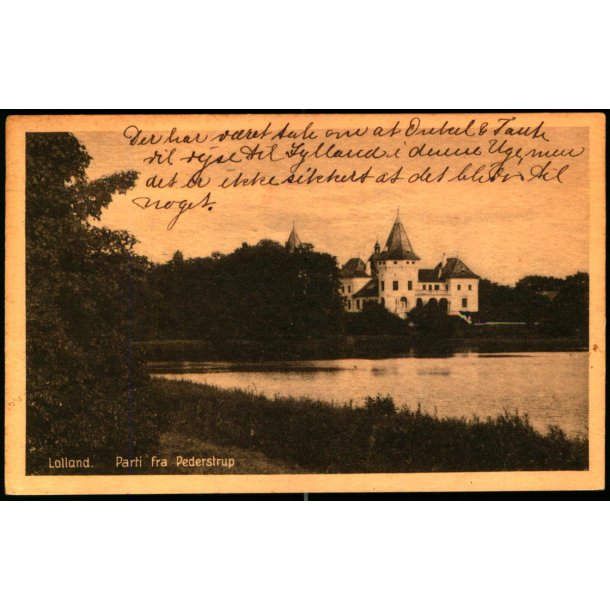 Der har været tale om at Onkel & Tante
vil rejse til Jylland i denne Uge, men
det er ikke sikkert at det bliver til
noget.
Lolland. Parti fra Pederstrup